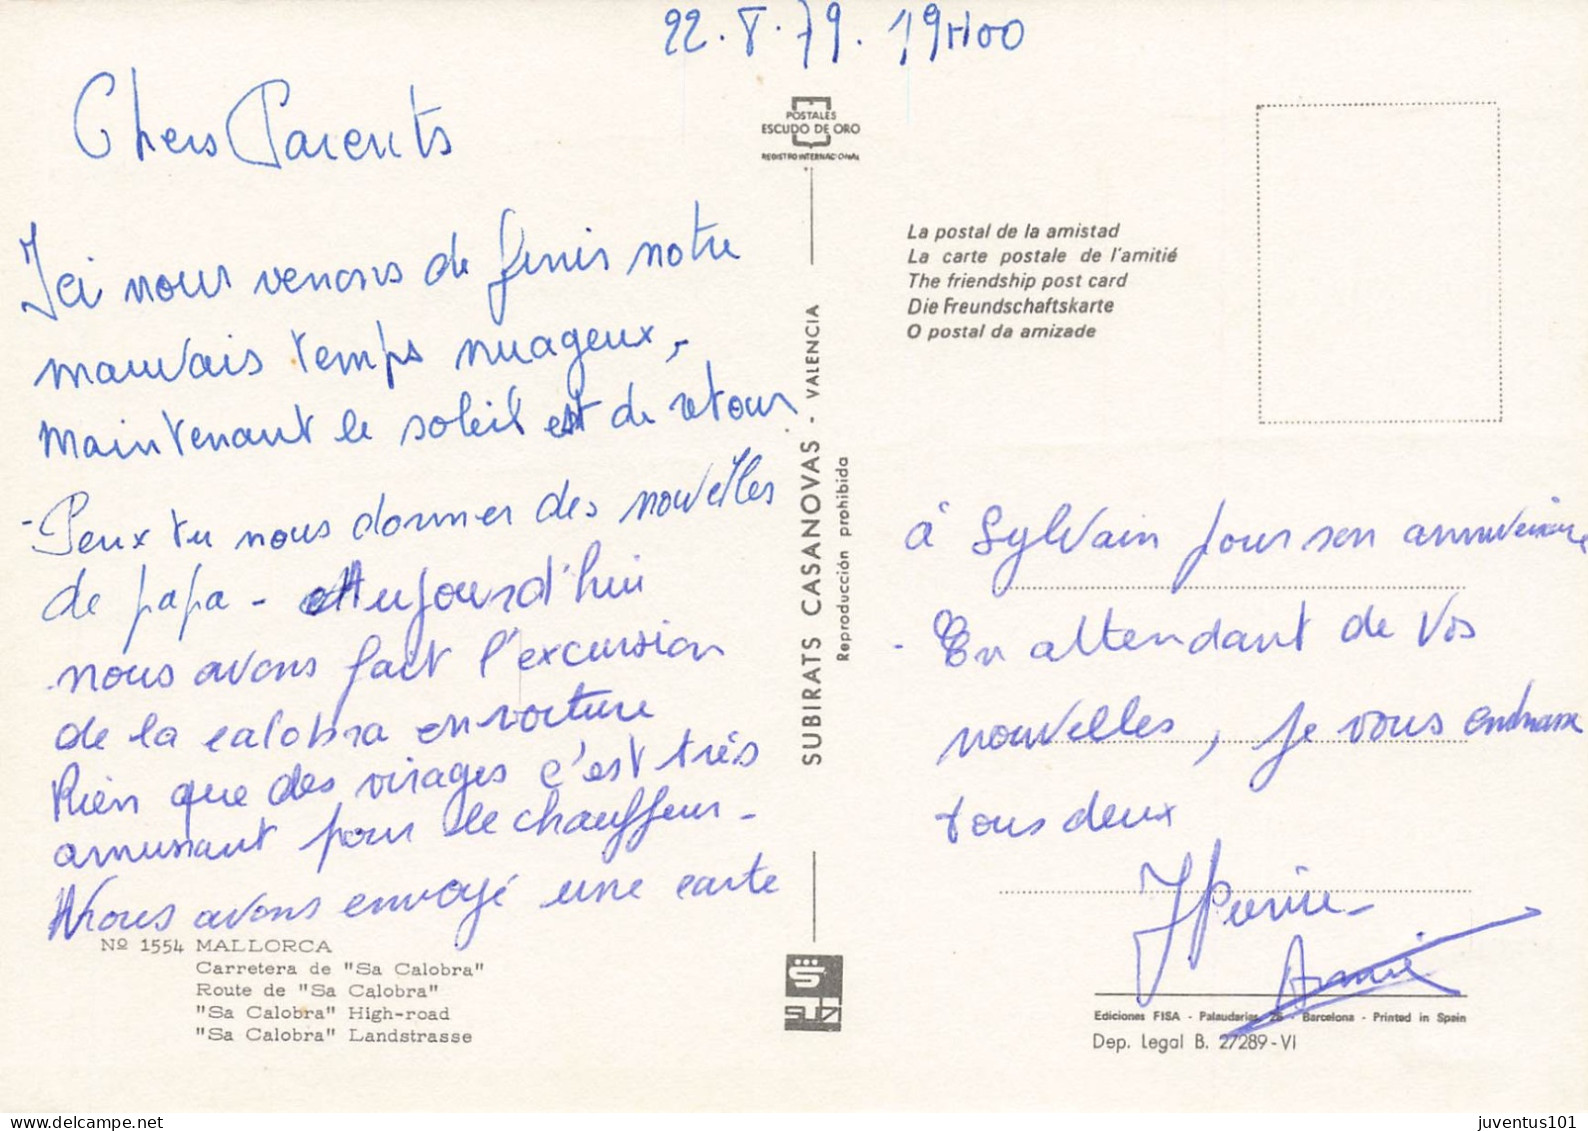 22.8.79. 19H00
Chers Parents
Ici nous venons de finir notre
mauvais temps nuageux,
maintenant le soleil est de retour
- Peux tu nous donner des nouvelles
de papa - Aujourd'hui
nous avons fait l'excursion
de la calobra en voiture
Rien que des virages c'est très
amusant pour le chauffeur -
Nous avons envoyé une carte
Nº 1554 MALLORCA
Carretera de "Sa Calobra"
Route de "Sa Calobra"
"Sa Calobra" High-road
"Sa Calobra" Landstrasse
POSTALES
ESCUDO DE ORO
REGISTRO INTERNACIONAL
SUBIRATS CASANOVAS - VALENCIA
Reproducción prohibida
La postal de la amistad
La carte postale de l'amitié
The friendship post card
Die Freundschaftskarte
O postal da amizade
à Sylvain pour son anniversaire
- En attendant de vos
nouvelles, je vous embrasse
tous deux
JPierre -
Annie
Ediciones FISA - Palaudarias, 26 - Barcelona - Printed in Spain
Dep. Legal B. 27289-VI
juventus101